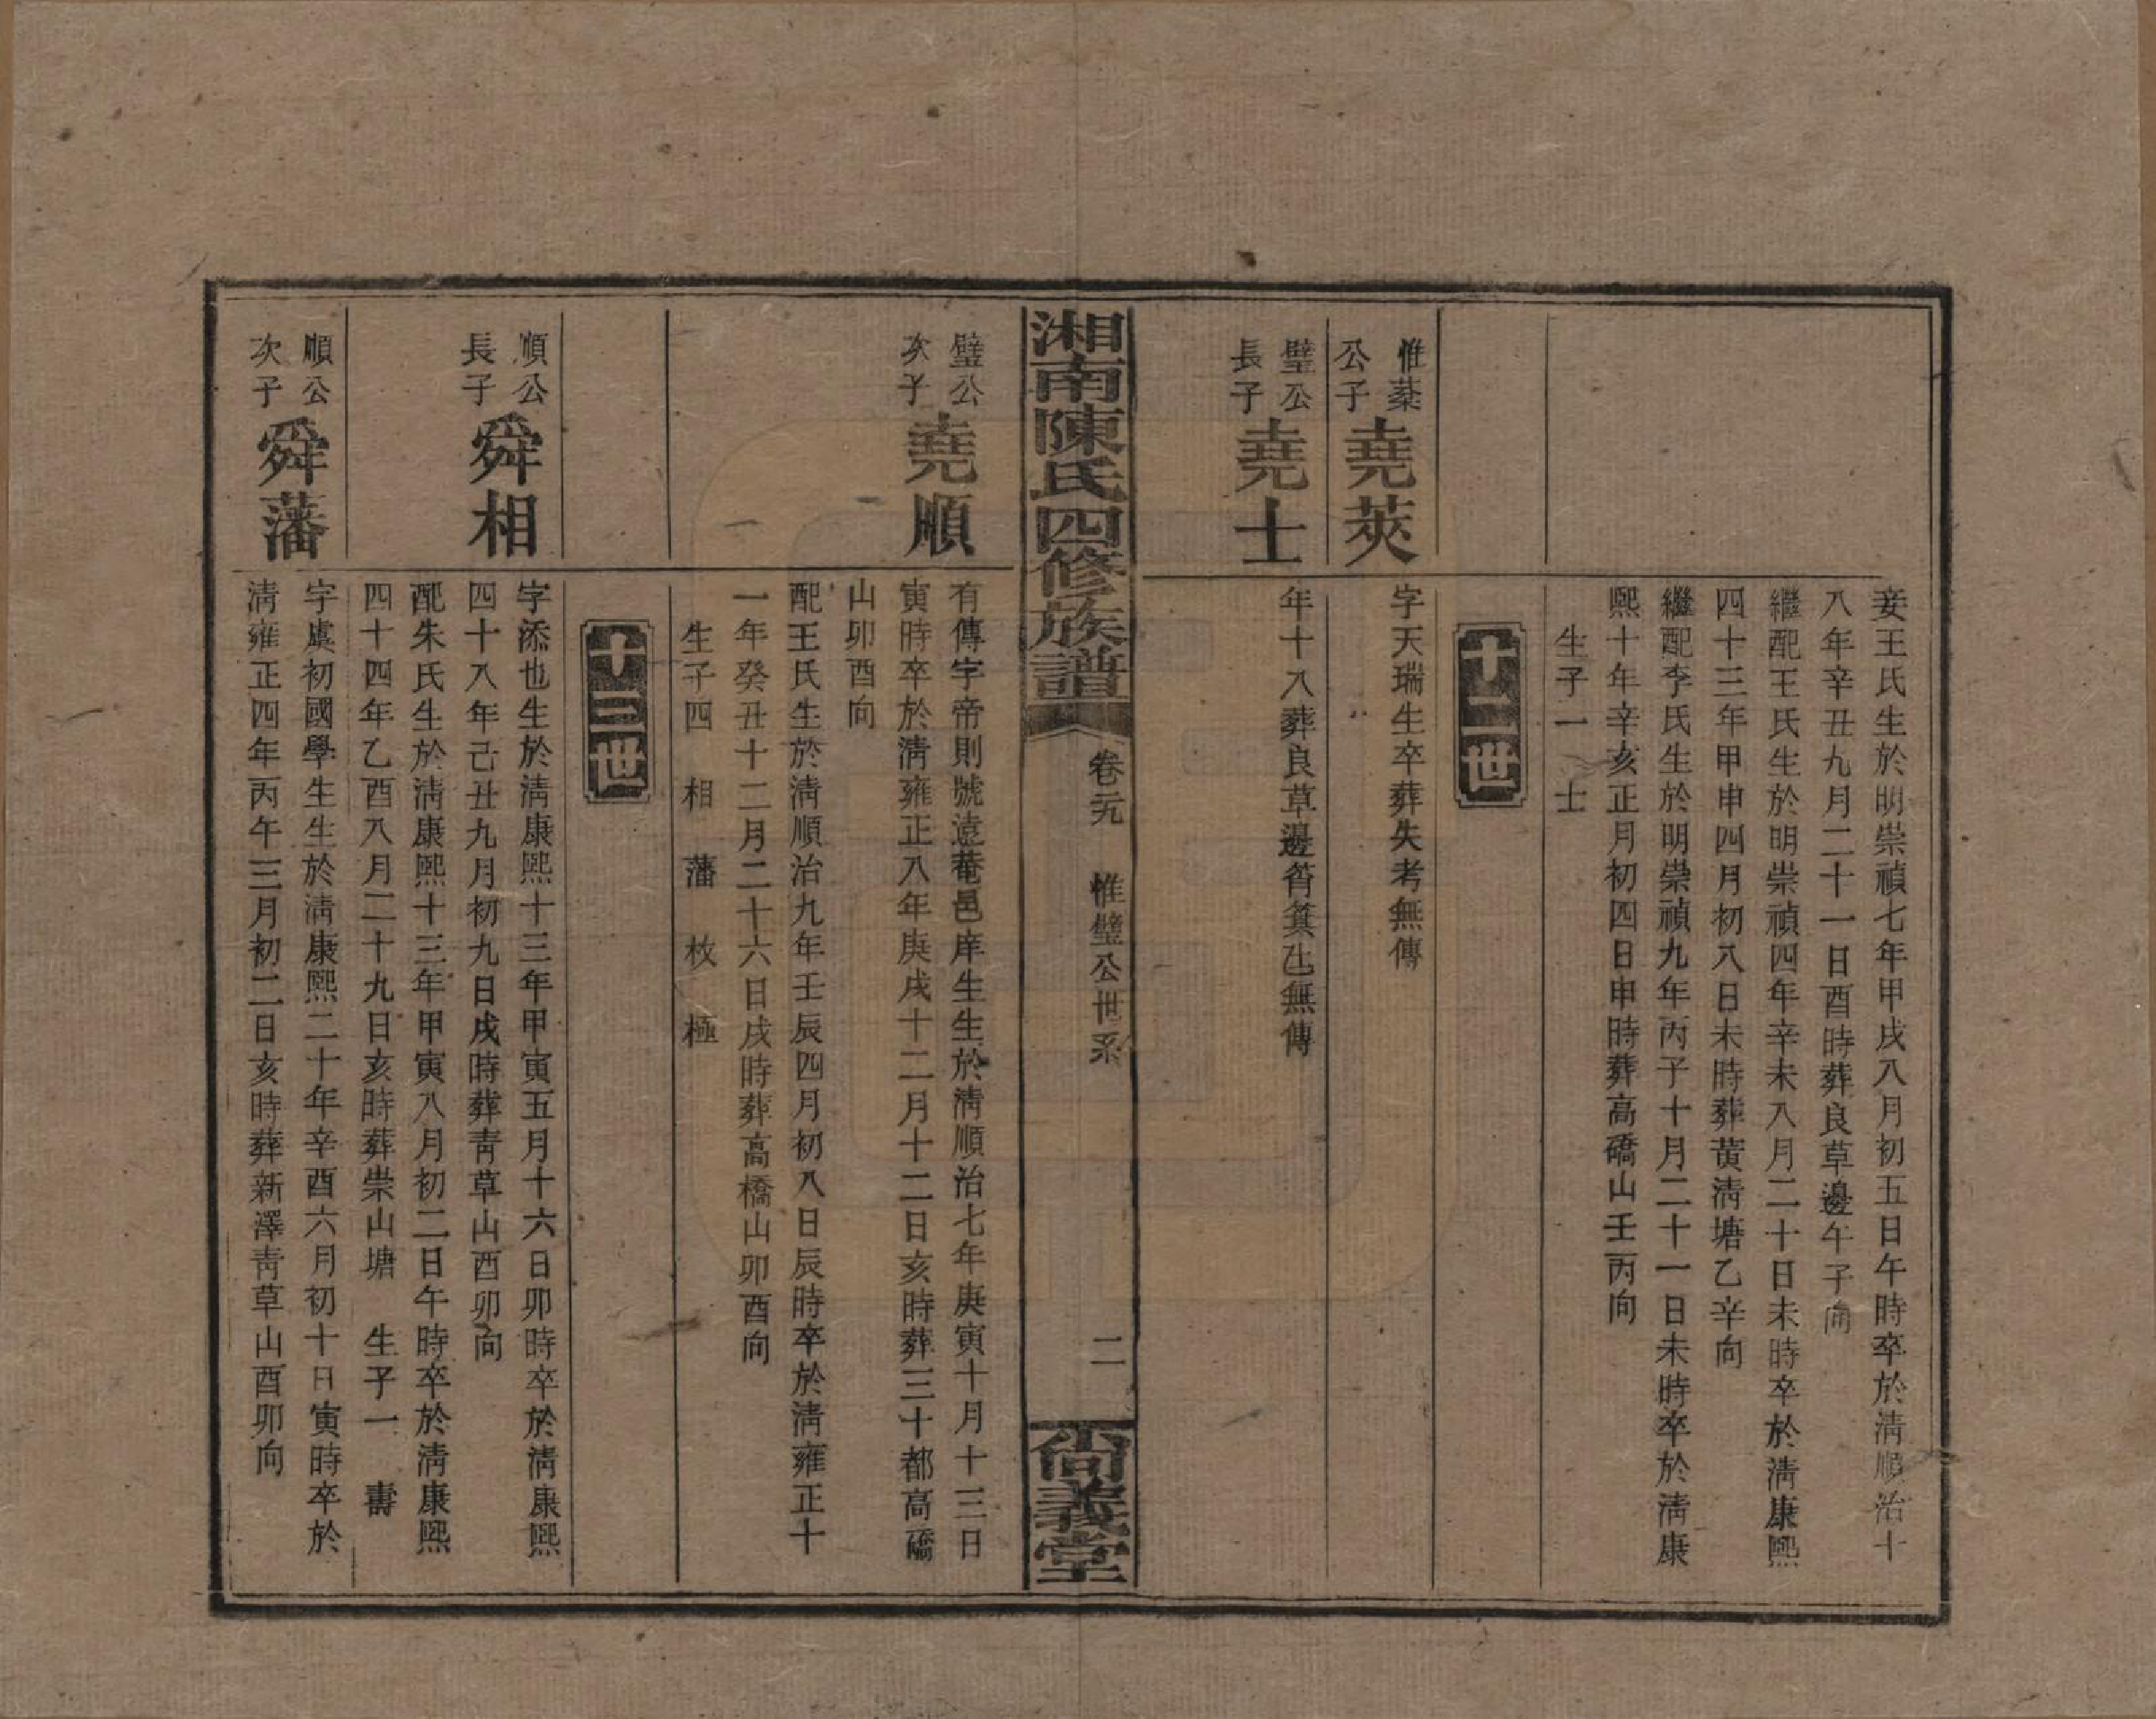 妾王氏生於明崇禎七年甲戌八月初五日午時卒於淸順治十
八年辛丑九月二十一日酉時葬良草邊午子向
繼配王氏生於明崇禎四年辛未八月二十日未時卒於淸康熙
四十三年甲申四月初八日未時葬黃淸塘乙辛向
繼配李氏生於明崇禎九年丙子十月二十一日未時卒於淸康
熙十年辛亥正月初四日申時葬高礄山壬丙向
生子一　士
十二世
惟蔾
公子
堯莢
字天瑞生卒葬失考無傳
璧公
長子
堯士
年十八葬良草邊筲箕氹無傳
湘南陳氏四修族譜
卷二九　惟璧公世系
二
尙義堂
璧公
次子
堯順
有傳字帝則號遠菴邑庠生生於淸順治七年庚寅十月十三日
寅時卒於淸雍正八年庚戌十二月十二日亥時葬三十都高礄
山卯酉向
配王氏生於淸順治九年壬辰四月初八日辰時卒於淸雍正十
一年癸丑十二月二十六日戌時葬高橋山卯酉向
生子四　相　藩　枚　極
十三世
順公
長子
舜相
字添也生於淸康熙十三年甲寅五月十六日卯時卒於淸康熙
四十八年己丑九月初九日戌時葬靑草山酉卯向
配朱氏生於淸康熙十三年甲寅八月初二日午時卒於淸康熙
四十四年乙酉八月二十九日亥時葬崇山塘　生子一　壽
順公
次子
舜藩
字虞初國學生生於淸康熙二十年辛酉六月初十日寅時卒於
淸雍正四年丙午三月初二日亥時葬新澤靑草山酉卯向